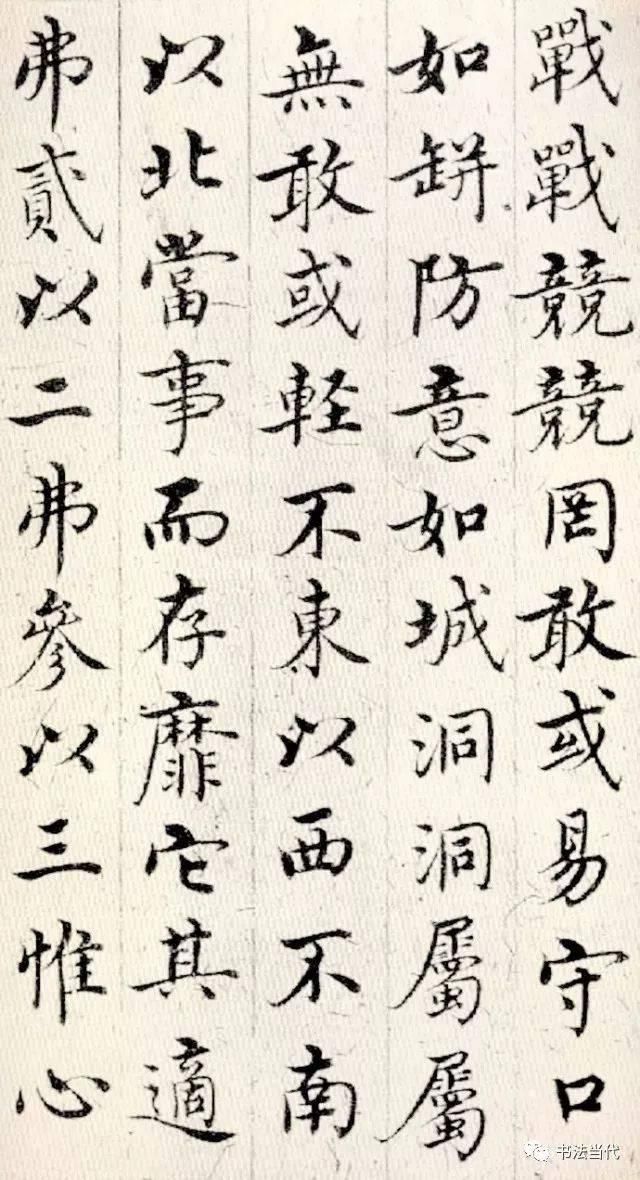 戰戰競競罔敢或易守口
如缾防意如城洞洞屬屬
無敢或軽不東以西不南
以北當事而存靡它其適
弗貳以二弗參以三惟心
书法当代